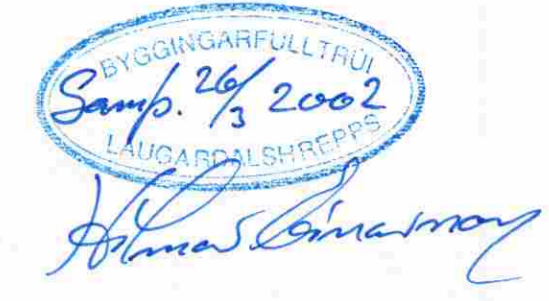 BYGGINGARFULLTRÚI
Samp. 26/3 2002
LAUGARDALSHREPPS
Hilmar Einarsson